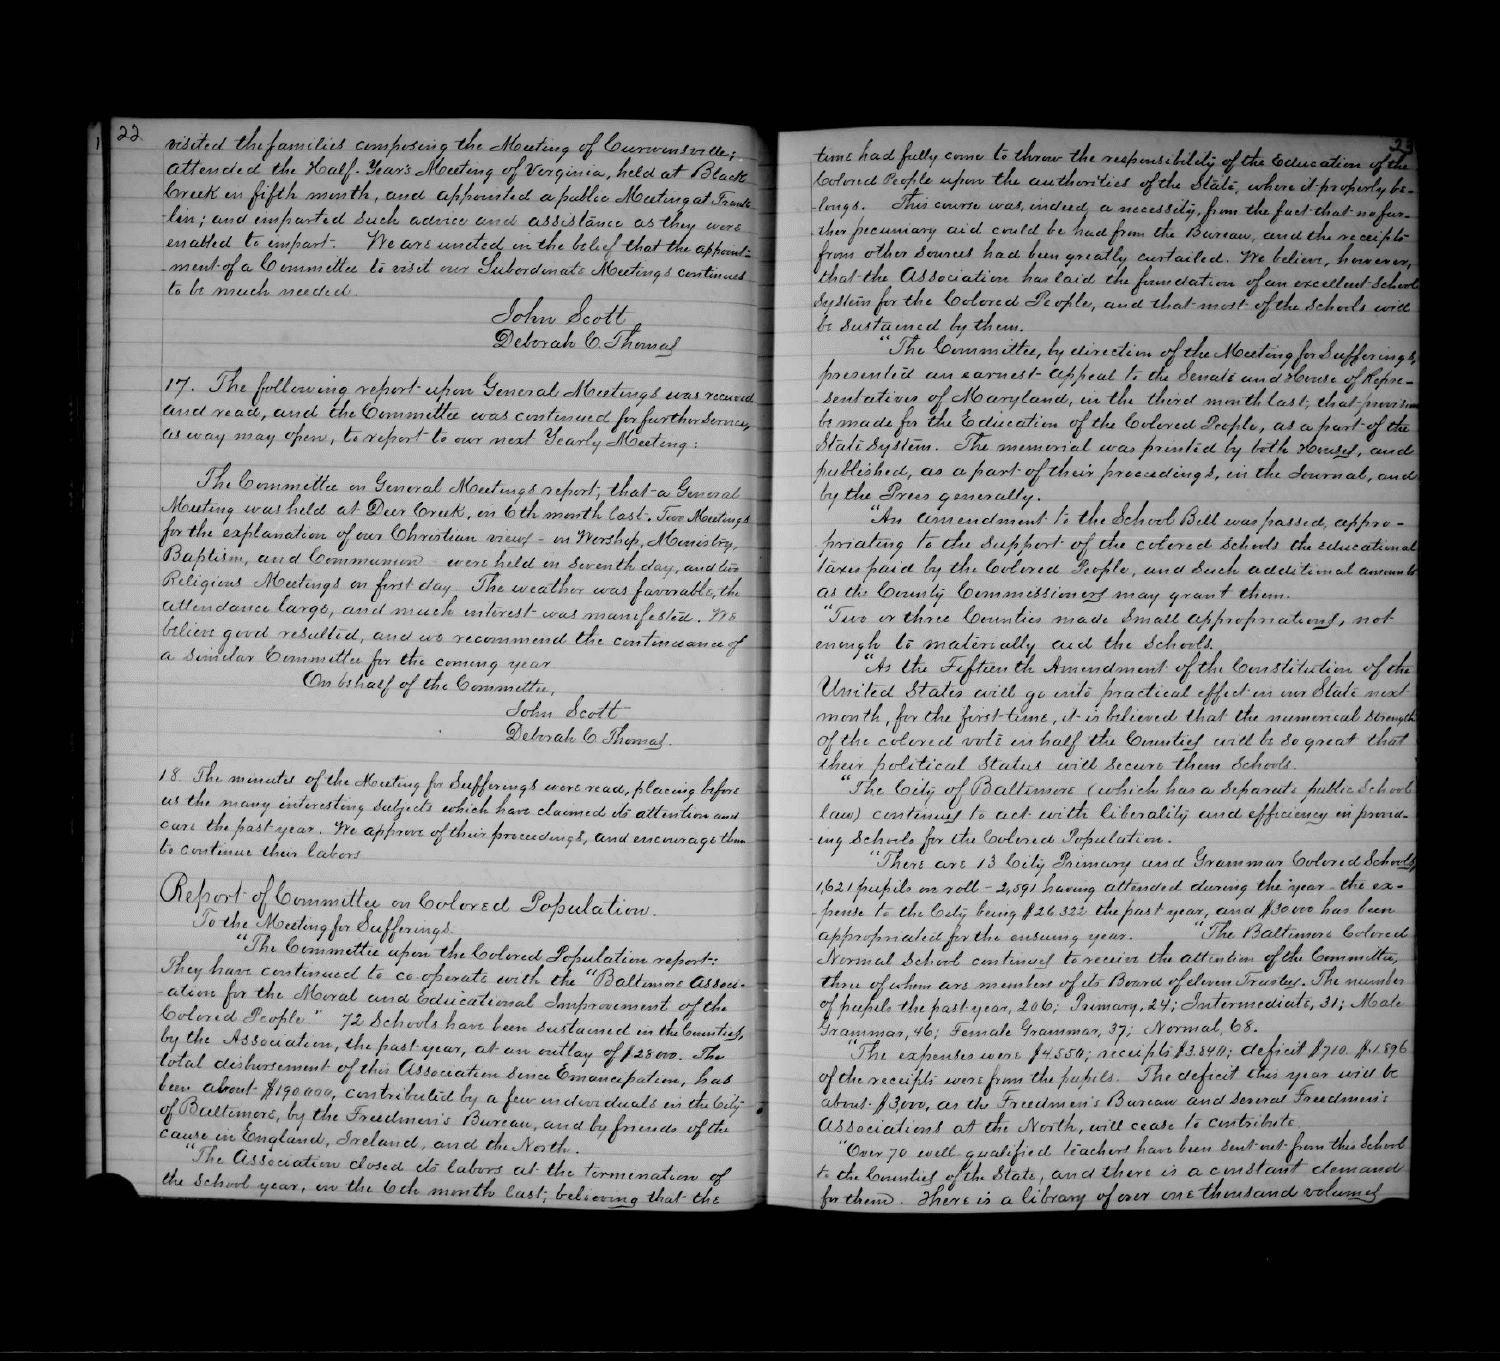 22
visited the families composing the Meeting of Curwensville;
attended the Half-Year's Meeting of Virginia, held at Black
Creek in fifth month, and appointed a public Meeting at Frank-
lin; and imparted such advice and assistance as they were
enabled to impart. We are united in the belief that the appoint-
ment of a Committee to visit our Subordinate Meetings continues
to be much needed.
John Scott
Deborah C. Thomas
17. The following report upon General Meetings was received
and read, and the Committee was continued for further service,
as way may open, to report to our next Yearly Meeting:
The Committee on General Meetings report; that a General
Meeting was held at Deer Creek, in 6th month last. Two Meetings
for the explanation of our Christian views - on Worship, Ministry,
Baptism, and Communion - were held on Seventh day, and two
Religious Meetings on first day. The weather was favorable, the
attendance large, and much interest was manifested. We
believe good resulted, and we recommend the continuance of
a similar Committee for the coming year
On behalf of the Committee,
John Scott
Deborah C. Thomas.
18. The minutes of the Meeting for Sufferings were read, placing before
us the many interesting subjects which have claimed its attention and
care the past year. We approve of their proceedings, and encourage them
to continue their labors
Report of Committee on Colored Population.
To the Meeting for Sufferings.
"The Committee upon the Colored Population report:
They have continued to co-operate with the "Baltimore Associ-
-ation for the Moral and Educational Improvement of the
Colored People." 72 Schools have been sustained in the Counties,
by the Association, the past year, at an outlay of $28000. The
total disbursement of this Association since Emancipation, has
been about $190.000, contributed by a few individuals in the City
of Baltimore, by the Freedmen's Bureau, and by friends of the
cause in England, Ireland, and the North.
"The Association closed its labors at the termination of
the school year, in the 6th month last; believing that the
23
time had fully come to throw the responsibility of the Education of the
Colored People upon the authorities of the State, where it properly be-
-longs. This course was, indeed, a necessity, from the fact that no fur-
-ther pecuniary aid could be had from the Bureau, and the receipts
from other sources had been greatly curtailed. We believe, however,
that the Association has laid the foundation of an excellent School
System for the Colored People, and that most of the Schools will
be sustained by them.
"The Committee, by direction of the Meeting for Sufferings,
presented an earnest appeal to the Senate and House of Repre-
-sentatives of Maryland, in the third month last, that provision
be made for the Education of the Colored People, as a part of the
State System. The memorial was printed by both Houses, and
published, as a part of their proceedings, in the Journal, and
by the Press generally.
"An amendment to the School Bill was passed, appro-
-priating to the support of the colored schools the educational
taxes paid by the Colored People, and such additional amounts
as the County Commissioners may grant them.
"Two or three Counties made small appropriations, not
enough to materially aid the schools.
"As the Fifteenth Amendment of the Constitution of the
United States will go into practical effect in our State next
month, for the first time, it is believed that the numerical strength
of the colored vote in half the Counties will be so great that
their political status will secure them schools.
"The City of Baltimore (which has a separate public School
law) continues to act with liberality and efficiency in provid-
-ing Schools for the Colored Population.
"There are 13 City Primary and Grammar Colored Schools,
1,621 pupils on roll - 2,591 having attended during the year - the ex-
-pense to the City being $26322 the past year, and $30000 has been
appropriated for the ensuing year. "The Baltimore Colored
Normal School continues to receive the attention of the Committee,
three of whom are members of its Board of eleven Trustees. The number
of pupils the past year, 206; Primary, 24; Intermediate, 31; Male
Grammar, 46; Female Grammar, 37; Normal, 68.
"The expenses were $4.550; receipts $3.840; deficit $710. $1.896
of the receipts were from the pupils. The deficit this year will be
about $3,000, as the Freedmen's Bureau and several Freedmen's
Associations at the North, will cease to contribute.
"Over 70 well qualified teachers have been sent out from this School
to the Counties of the State, and there is a constant demand
for them. There is a library of over one thousand volumes